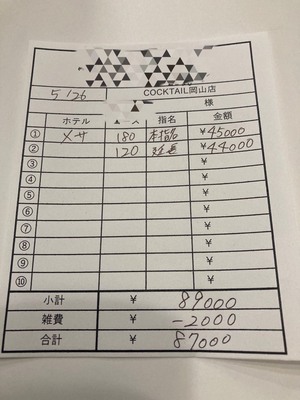 COCKTAIL岡山店
5/26
様
ホテル 指名 金額
① メサ 180 本指名 ¥45000
② 120 延長 ¥44000
③ ¥
④ ¥
⑤ ¥
⑥ ¥
⑦ ¥
⑧ ¥
⑨ ¥
⑩ ¥
小計 ¥ 89000
雑費 ¥ -2000
合計 ¥ 87000